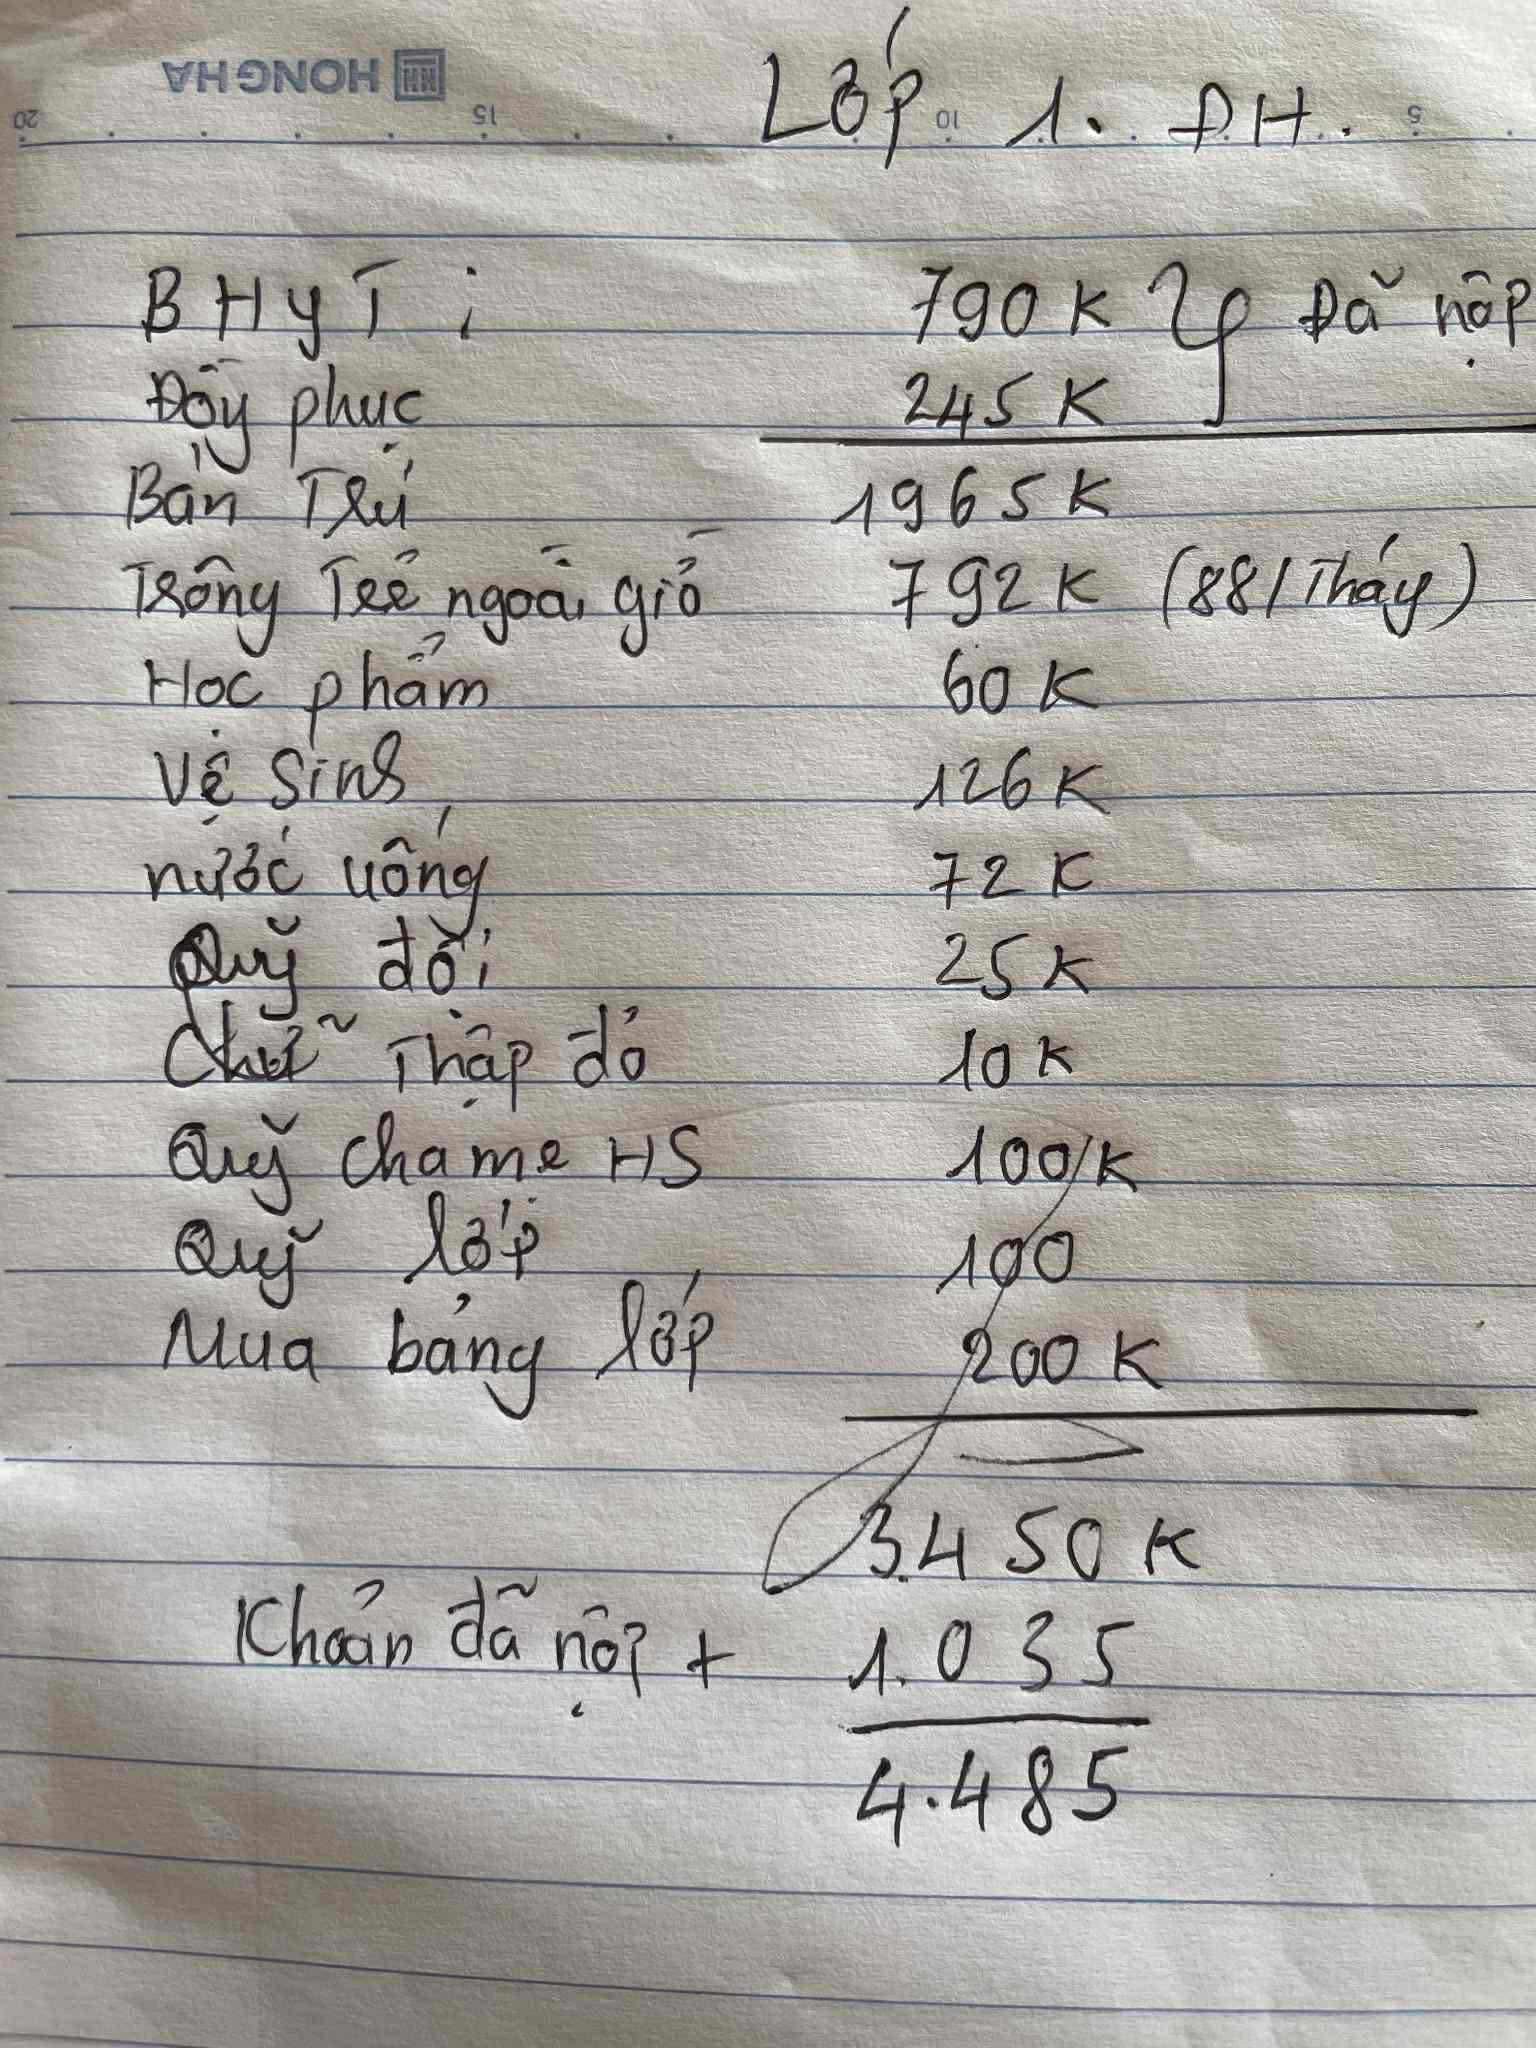 HONG HA
20 15 10 5
Lớp 1. ĐH.
BHyT : 790K Đã nộp
Đồng phục 245K
Bán Trú 1965K
Trông Trẻ ngoài giờ 792K (88/Tháng)
Học phẩm 60K
Vệ Sinh 126K
nước uống 72K
Quỹ đội 25K
Chữ Thập đỏ 10K
Quỹ cha mẹ HS 100K
Quỹ lớp 100
Mua bảng lớp 200K
3.450K
Khoản đã nộp + 1.035
4.485